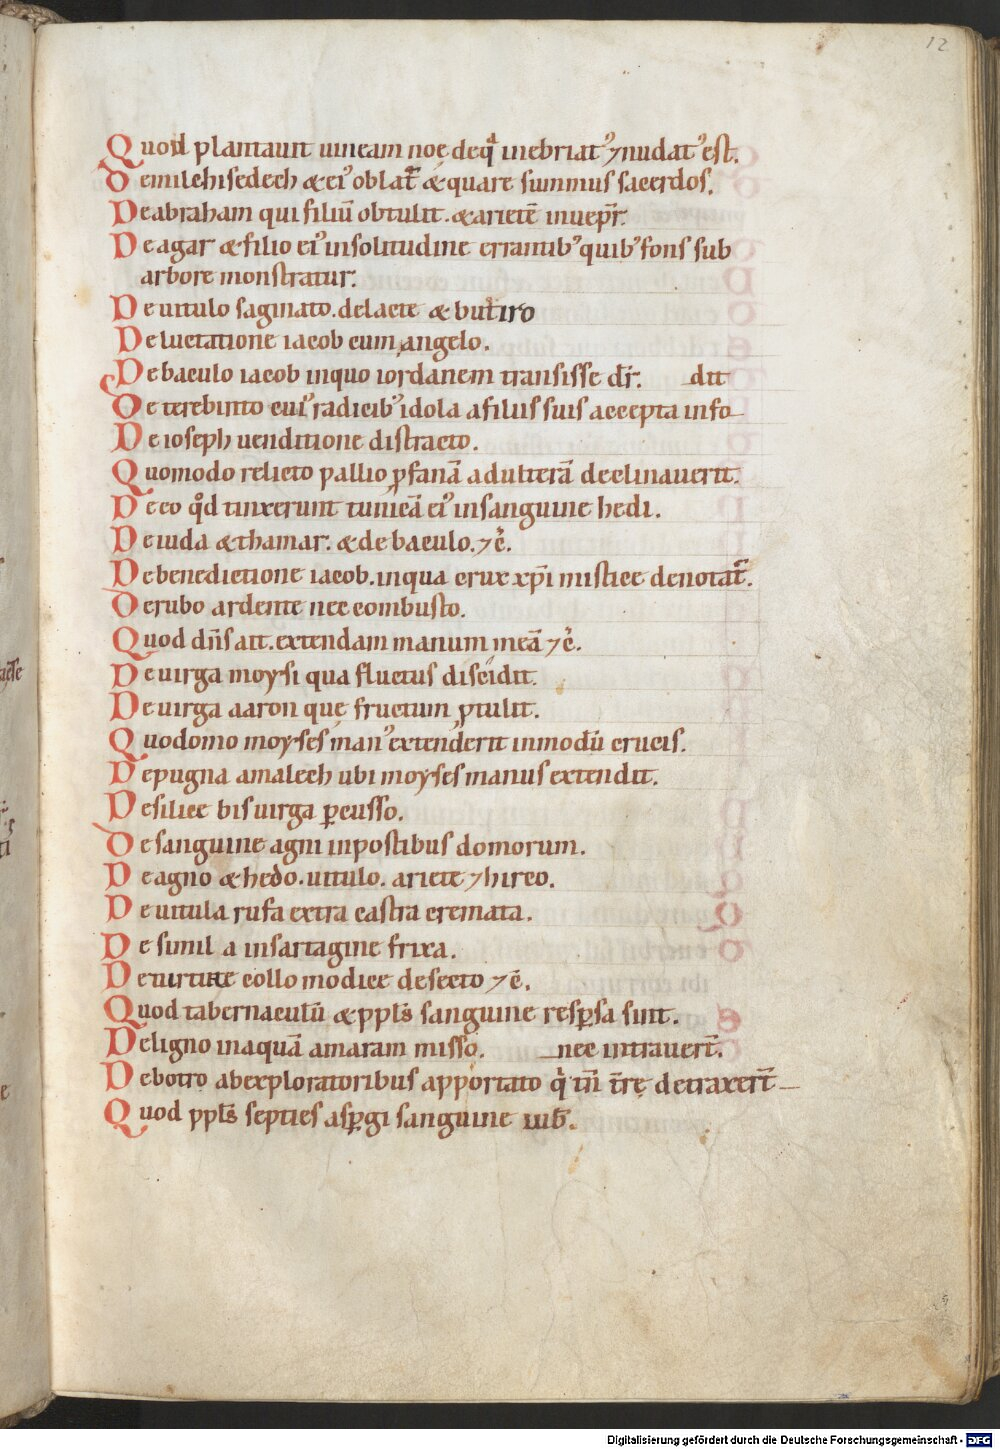 12
Quod plantauit uineam noe de qͣ inebriatꝰ ⁊ nudatꝰ est.
De milchisedech & eiꝰ oblat̄ & quare summus sacerdos.
De abraham qui filiū obtulit. & arietē inuep̄r.
De agar & filio eiꝰ in solitudine errantibꝰ quibꝰ fons sub
arbore monstratur.
De uitulo saginato. de lacte & butiro
De luctatione iacob cum angelo.
De baculo iacob in quo iordanem transisse dr̄. dit
De terebinto cuiꝰ radicibꝰ idola a filiis suis accepta info
De ioseph uenditione distracto.
Quomodo relicto pallio ꝓfanā adulterā declinauerit.
De eo qd̊ tinxerunt tunicā eiꝰ in sanguine hedi.
De iuda & thamar. & de baculo. ⁊ c̄.
De benedictione iacob. in qua crux xp̄i mistice denotat̄.
De rubo ardente nec combusto.
Quod dn̄s ait. extendam manum meā ⁊ c̄.
De uirga moysi qua fluctus discidit.
De uirga aaron que fructum ꝓtulit.
Quodomo moyses manꝰ extenderit in modū crucis.
De pugna amalech ubi moyses manus extendit.
De silice bis uirga ꝑcusso.
De sanguine agni in postibus domorum.
De agno & hedo. uitulo. ariete ⁊ hirco.
De uitula rufa extra castra cremata.
De simila in sartagine frixa.
De turture collo modice desecto ⁊ c̄.
Quod tabernaculū & ppl̄s sanguine resꝑsa sunt.
De ligno in aquā amaram misso. nec intrauert̄.
De botro ab exploratoribus apportato qͥ tn̄ t̄rę detraxert̄
Quod ppl̄s septies asꝑgi sanguine iub̄.
Digitalisierung gefördert durch die Deutsche Forschungsgemeinschaft - DFG